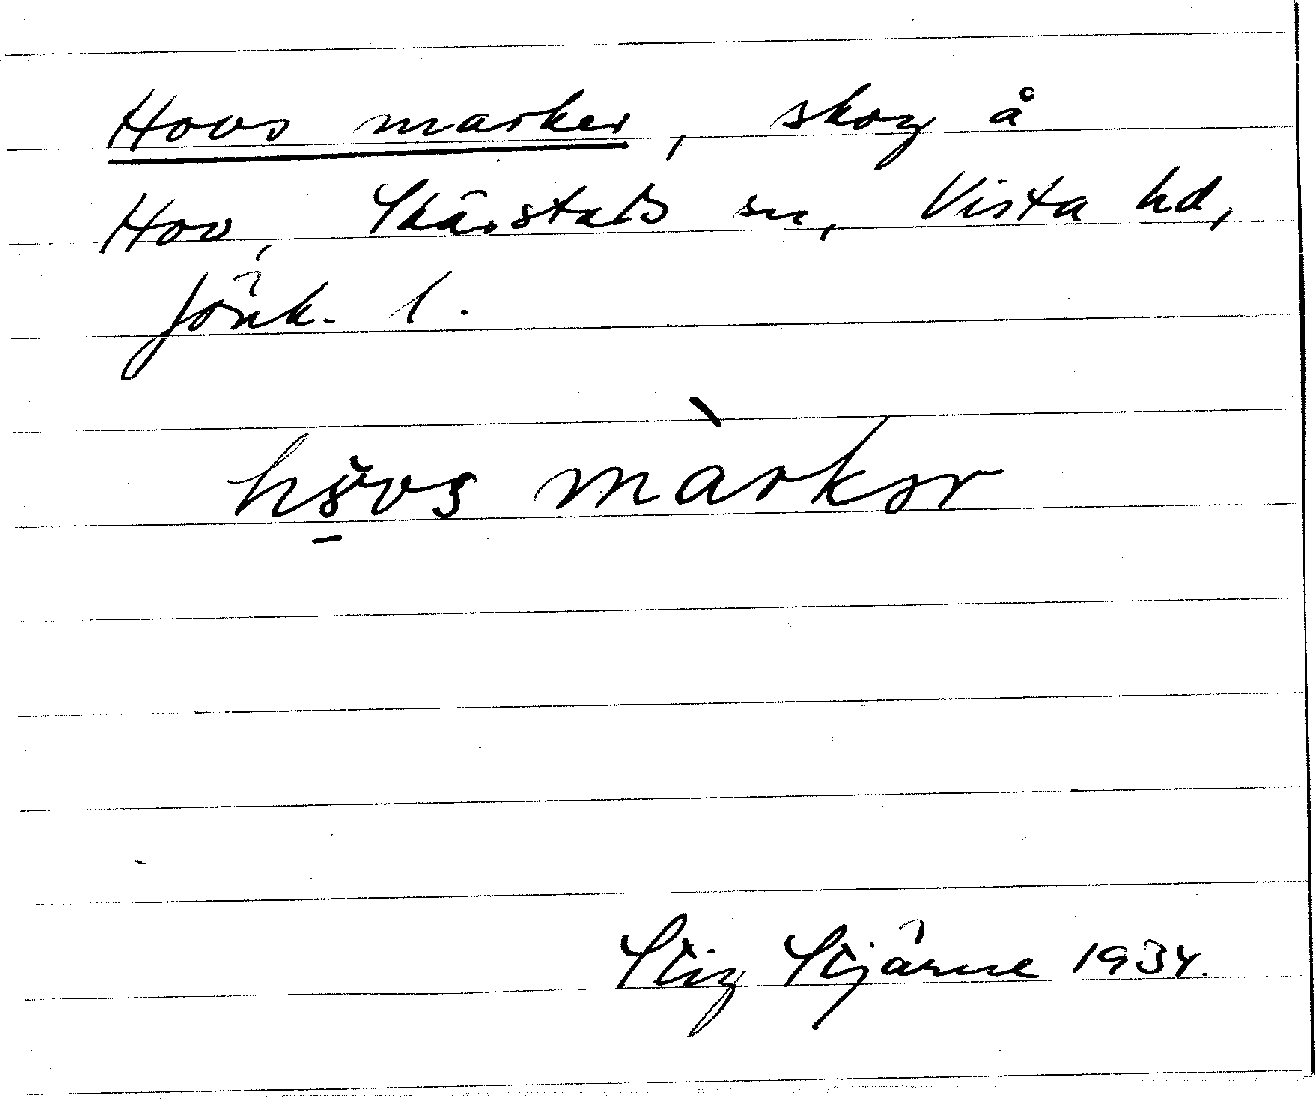 Hovs marker, skog å
Hov, Skärstads sn, Vista hd,
Jönk. l.
màrkər
Stig Stjärne 1934.